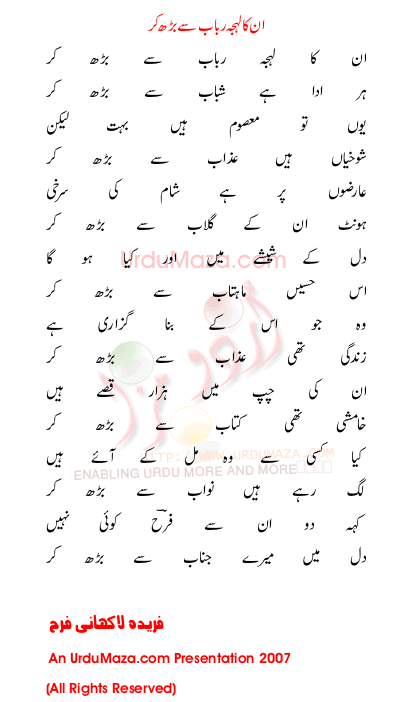 ان کا لہجہ رباب سے بڑھ کر
ان کا لہجہ رباب سے بڑھ کر
ہر ادا ہے شباب سے بڑھ کر
یوں تو معصوم ہیں بہت لیکن
شوخیاں ہیں عذاب سے بڑھ کر
عارضوں پر ہے شام کی سرخی
ہونٹ ان کے گلاب سے بڑھ کر
دل کے شیشے میں اور کیا ہو گا
UrduMaza.com
اس حسیں ماہتاب سے بڑھ کر
وہ جو اس کے بنا گزاری ہے
زندگی تھی عذاب سے بڑھ کر
اردو مزا
ان کی چپ میں ہزار قصے ہیں
خامشی تھی کتاب سے بڑھ کر
کیا کسی سے وہ مل کے آئے ہیں
HTTP://WWW.URDUMAZA.COM
ENABLING URDU MORE AND MORE
لگ رہے ہیں نواب سے بڑھ کر
کہہ دو ان سے فرحؔ کوئی نہیں
دل میں میرے جناب سے بڑھ کر
فریدہ لاکھانی فرح
An UrduMaza.com Presentation 2007
(All Rights Reserved)